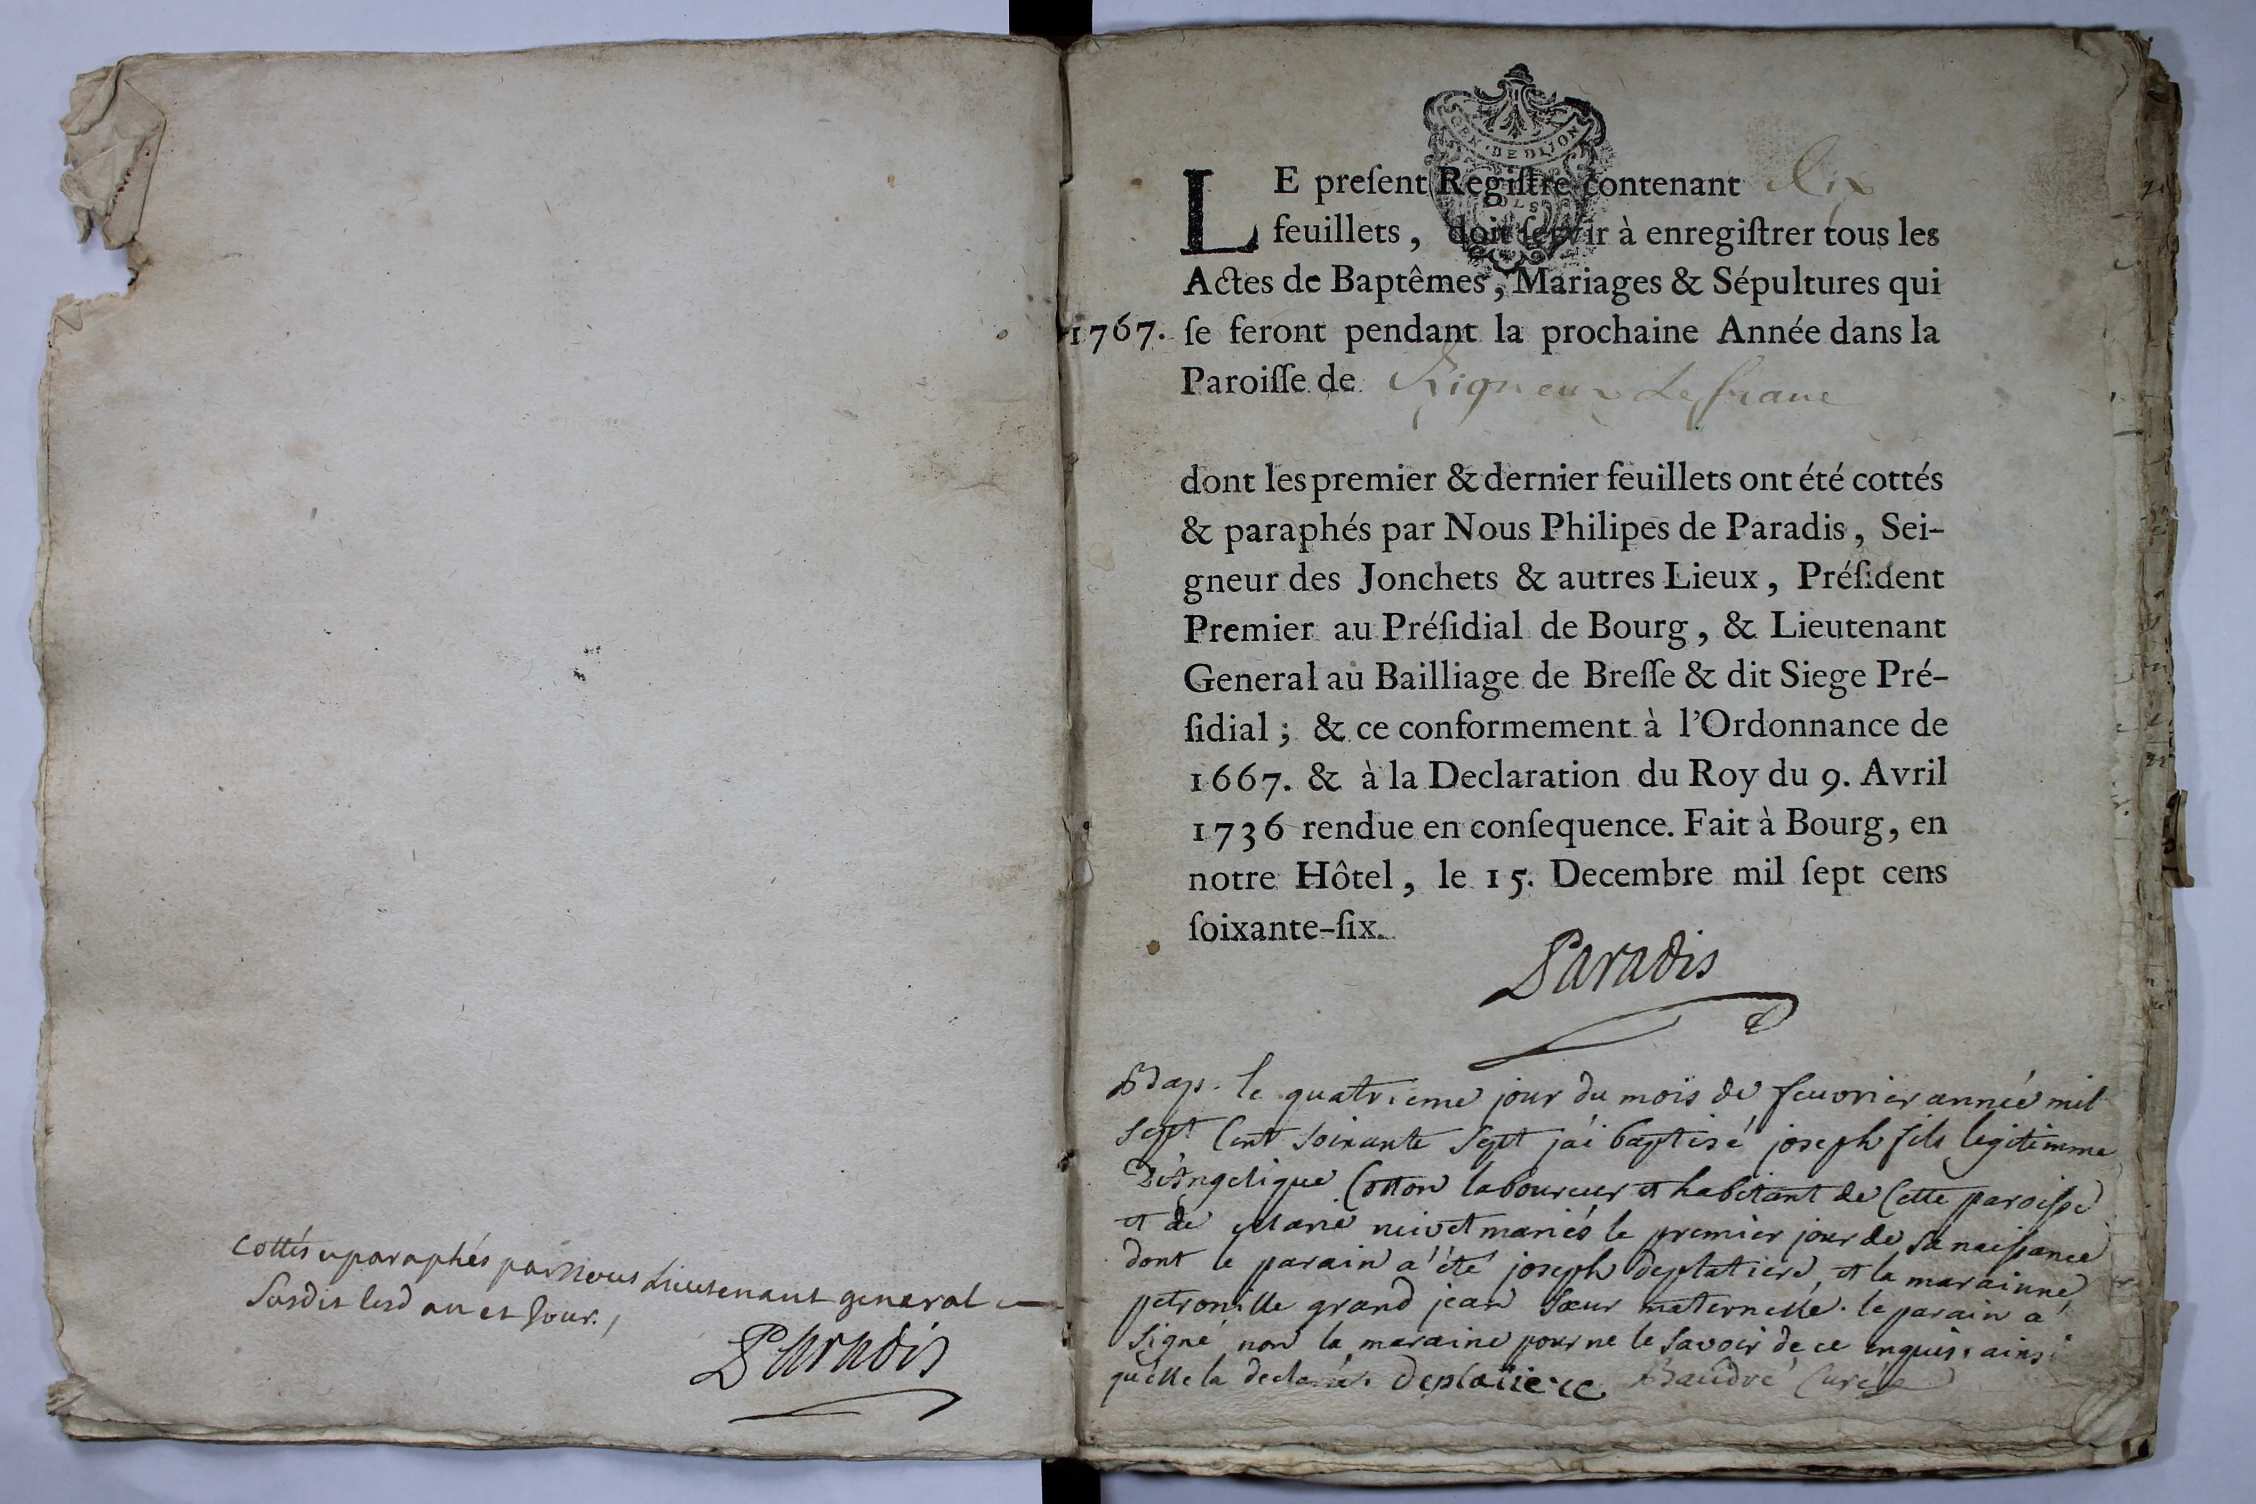 Cottés et paraphés par Nous Lieutenant general
Susdit lesd an et Jour.
Paradis
GEN. DE DIJON
LE preſent Regiſtre contenant dix
feuillets, doit ſervir à enregiſtrer tous les
Actes de Baptêmes, Mariages & Sépultures qui
1767. ſe feront pendant la prochaine Année dans la
Paroiſſe de Rigneux Le franc
dont les premier & dernier feuillets ont été cottés
& paraphés par Nous Philipes de Paradis, Sei-
gneur des Jonchets & autres Lieux, Préſident
Premier au Préſidial de Bourg, & Lieutenant
General au Bailliage de Breſſe & dit Siege Pré-
ſidial; & ce conformement à l'Ordonnance de
1667. & à la Declaration du Roy du 9. Avril
1736 rendue en conſequence. Fait à Bourg, en
notre Hôtel, le 15. Decembre mil ſept cens
ſoixante-ſix.
Paradis
Bap. le quatrieme jour du mois de feuvrier année mil
sept Cent soixante sept j'ai baptisé joseph fils legitimme
D'Angelique Cotton laboureur et habitant de Cette paroisse
et de Marie nivet mariés le premier jour de sa naissance
dont le parain a été joseph deplatiere, et la marainne
petronille grand jean sœur maternelle. le parain a
signé non la maraine pour ne le savoir de ce enquis, ainsi
qu'elle la declaré. Deplatiere Baudré Curé